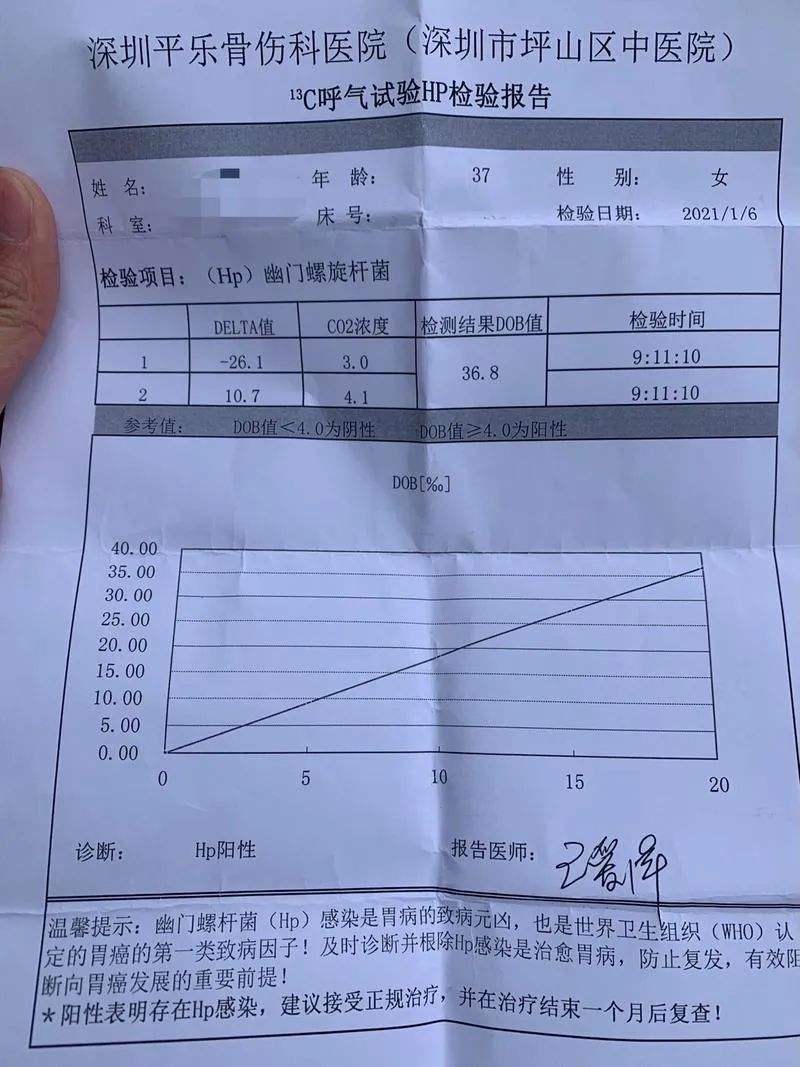 深圳平乐骨伤科医院（深圳市坪山区中医院）
¹³C呼气试验HP检验报告
姓 名： 年 龄： 37 性 别： 女
科 室： 床 号： 检验日期： 2021/1/6
检验项目：（Hp）幽门螺旋杆菌
DELTA值 CO2浓度 检测结果DOB值 检验时间
1 -26.1 3.0 36.8 9:11:10
2 10.7 4.1 9:11:10
参考值： DOB值＜4.0为阴性 DOB值≥4.0为阳性
DOB[‰]
40.00
35.00
30.00
25.00
20.00
15.00
10.00
5.00
0.00
0 5 10 15 20
诊断： Hp阳性 报告医师：
温馨提示：幽门螺杆菌（Hp）感染是胃病的致病元凶，也是世界卫生组织（WHO）认
定的胃癌的第一类致病因子！及时诊断并根除Hp感染是治愈胃病，防止复发，有效阻
断向胃癌发展的重要前提！
*阳性表明存在Hp感染，建议接受正规治疗，并在治疗结束一个月后复查！